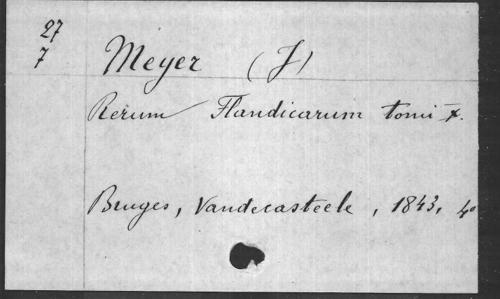 27
7
Meyer (J)
Rerum Flandicarum tomi X.
Bruges, Vandecasteele, 1843, 4°